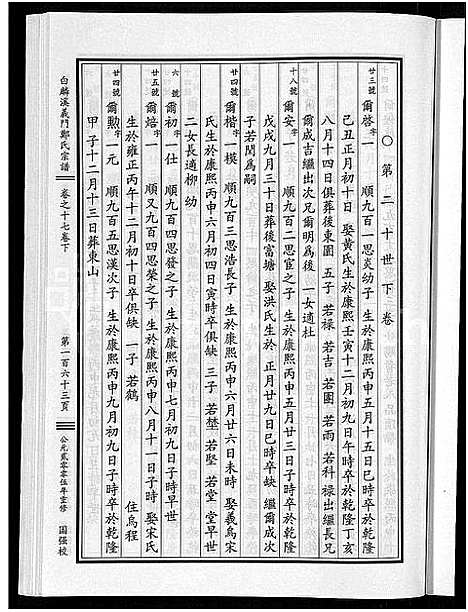 ○第二十世下卷
廿三號 爾啓字一 順九百一思炎幼子 生於康熙丙申五月十五日巳時卒於乾隆
己丑正月初十日 娶黃氏生於康熙壬寅十二月初九日午時卒於乾隆丁亥
八月十四日俱葬後東園 五子 若祿 若吉 若圖 若雨 若科 祿出繼長兄
爾成吉繼出次兄爾明為後 一女適杜
十八號 爾安字一 順九百二思宦之子 生於康熙丙申五月廿三日子時卒於乾隆
戊戌九月三十日葬後富塘 娶洪氏生於 正月廿九日巳時卒缺 繼爾成次
子若閏為嗣
廿四號 爾楷字一模 順九百三思浩長子 生於康熙丙申六月廿六日未時 娶義烏宋
氏生於康熙丙申六月初四日寅時卒俱缺 三子 若堃 若堅 若堂 堂早世
二女長適柳 幼
六號 爾初字一仕 順九百四思發之子 生於康熙丙申七月初九日子時早世
廿五號 爾焙字一 順又九百四思榮之子 生於康熙丙申八月十一日子時 娶宋氏
生於雍正丙午十二月初十日卒俱缺 一子 若鶴 住烏程
廿四號 爾勲字一元 順九百五思漢次子 生於康熙丙申九月初九日子時卒於乾隆
甲子十二月十三日葬東山
白麟溪義門鄭氏宗譜 卷之十七卷下 第一百六十三頁 公元貳零零伍年重修 國强校